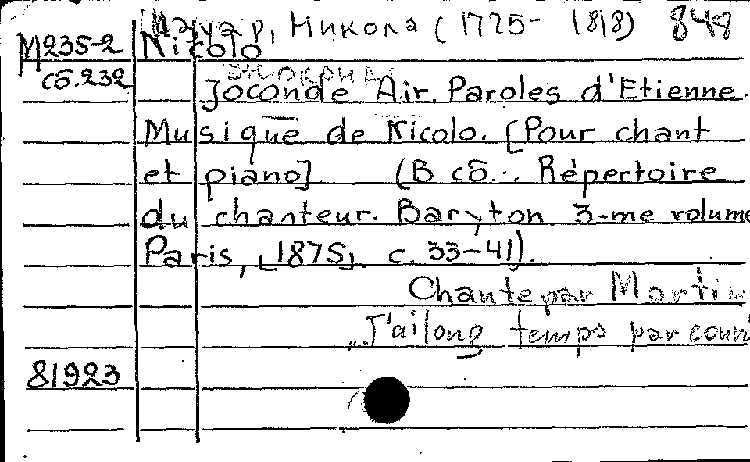 Изуар, Никола (1775-1818) 848
М235-2 Nicolo
сб.232
Joconde Air. Paroles d'Etienne.
Musique de Nicolo. [Pour chant
et piano] (В сб... Répertoire
du chanteur. Baryton 3-me volume
Paris, [1875]. с. 33-41).
Chante par Martin
"J'ai long temps parcour
81923